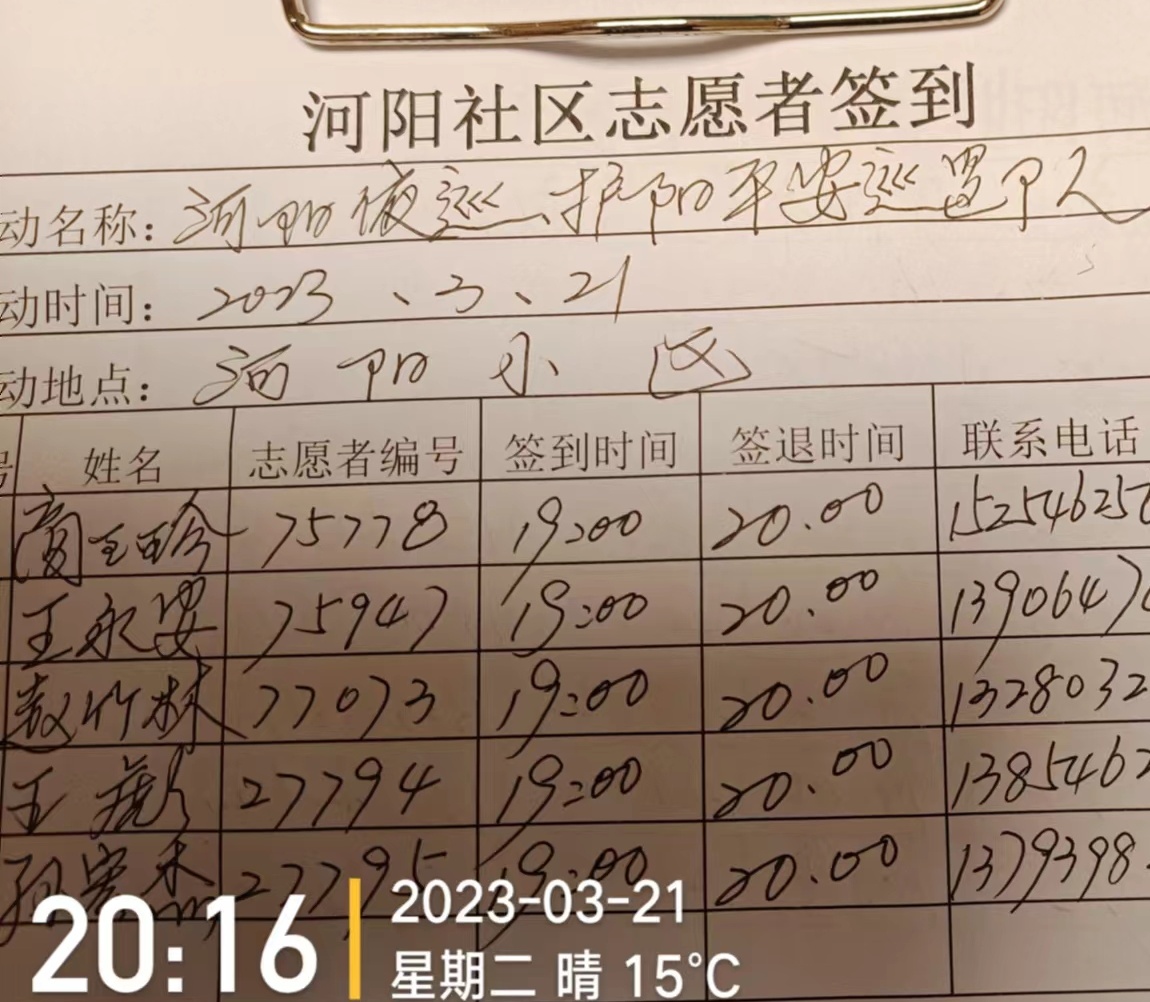 河阳社区志愿者签到
动名称：河阳夜巡、护阳平安巡逻个人
动时间：2023、3、21
动地点：河阳小区
号 姓名 志愿者编号 签到时间 签退时间 联系电话
75778 19:00 20.00 152546250
王永安 75947 19:00 20.00 1390647
赵竹林 77073 19:00 20.00 1328032
王 27794 19:00 20.00 1385462
孙 27795 19:00 20.00 1379398
20:16
2023-03-21
星期二 晴 15°C